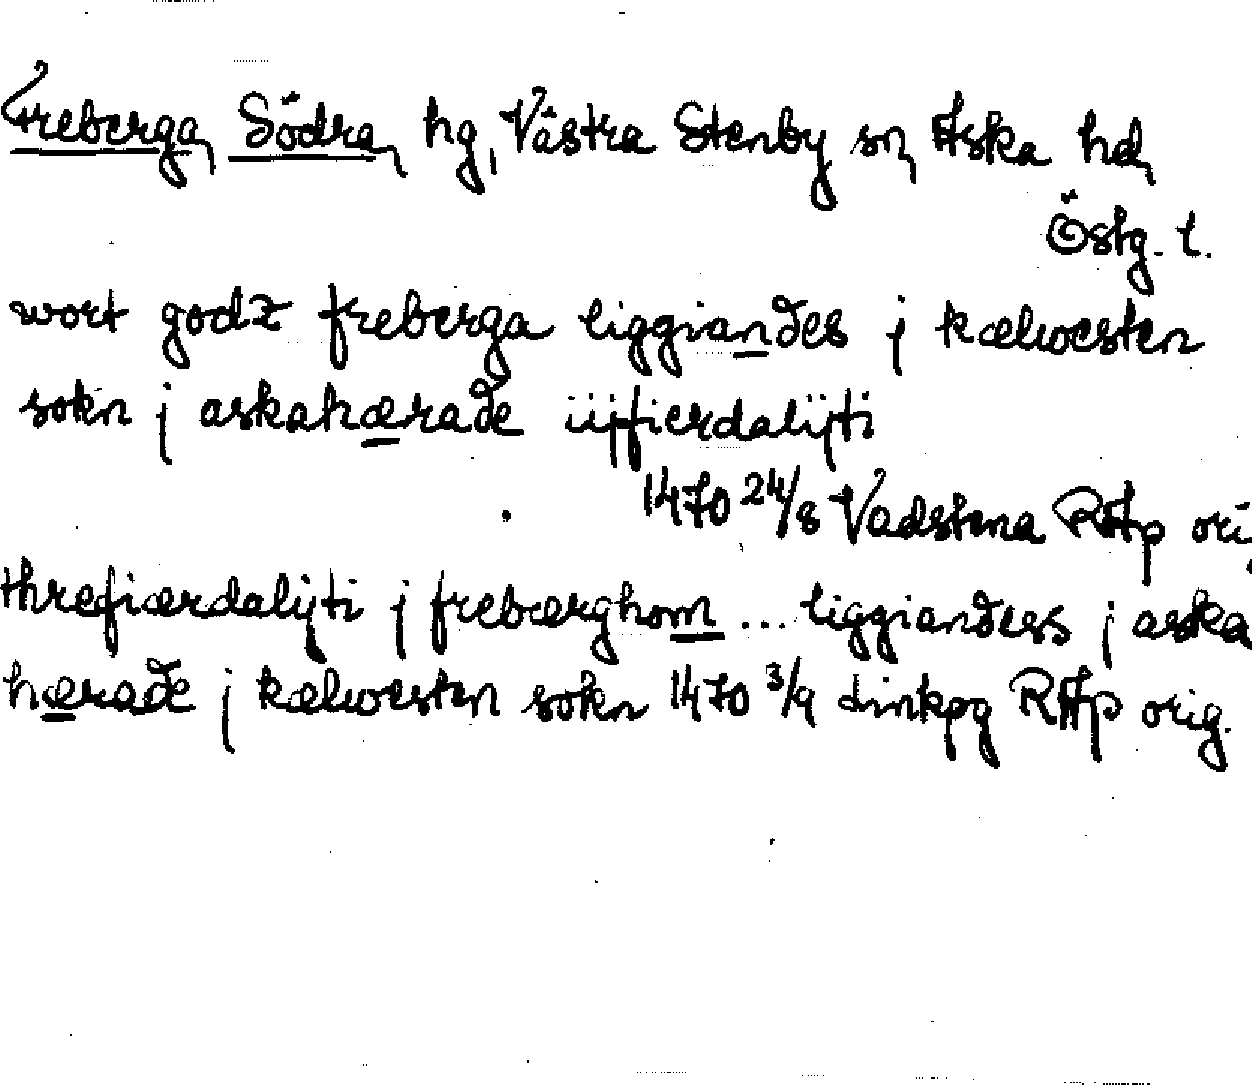 Freberga, Södra, hg, Västra Stenby sn, Aska hd,
Östg. l.
wort godz freberga liggiandes j kælwesten
sokn j askahærade iijfierdalijti
1470 24/8 Vadstena RAp ori
threfiærdalijti j frebærghom ... liggiandess j aska
hærade j kælwesten sokn 1470 3/9 Linkpg RAp orig.